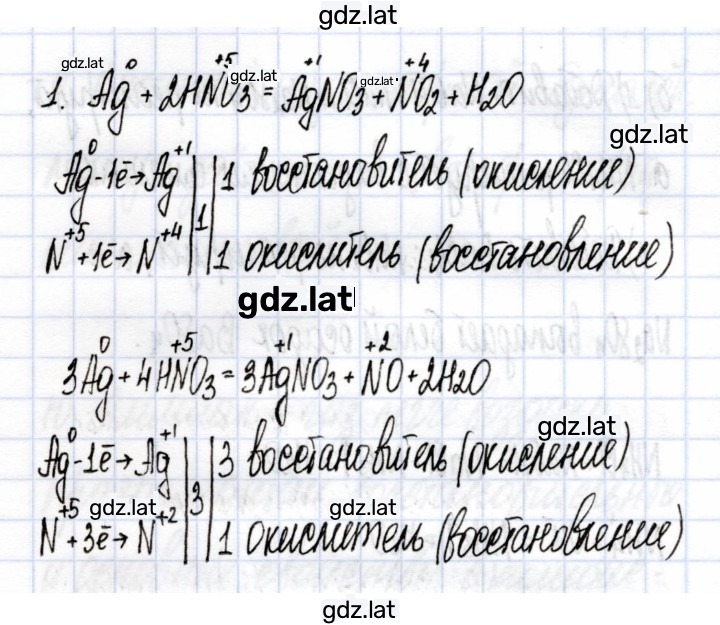 gdz.lat
gdz.lat gdz.lat gdz.lat
1. Ag⁰ + 2HN⁺⁵O₃ = Ag⁺¹NO₃ + N⁺⁴O₂ + H₂O
gdz.lat
Ag⁰ - 1ē → Ag⁺¹ | | 1 восстановитель (окисление)
1
N⁺⁵ + 1ē → N⁺⁴ | | 1 окислитель (восстановление)
gdz.lat
3Ag⁰ + 4HN⁺⁵O₃ = 3Ag⁺¹NO₃ + N⁺²O + 2H₂O
gdz.lat
Ag⁰ - 1ē → Ag⁺¹ | | 3 восстановитель (окисление)
3
gdz.lat gdz.lat
N⁺⁵ + 3ē → N⁺² | | 1 окислитель (восстановление)
gdz.lat